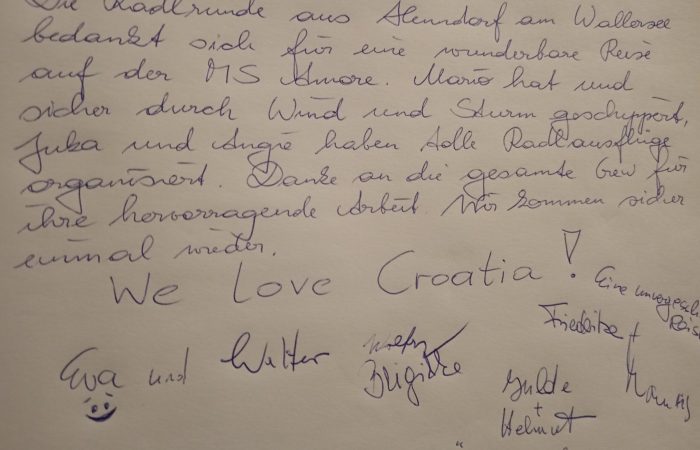 Die Radlrunde aus Henndorf am Wallersee
bedankt sich für eine wunderbare Reise
auf der MS Amore. Mario hat und
sicher durch Wind und Sturm geschippert,
Juka und Angie haben tolle Radlausflüge
organisiert. Danke an die gesamte Crew für
ihre hervorragende Arbeit. Wir kommen sicher
einmal wieder.
We love Croatia!
Eine
Eva und Walter
Brigitte
Helmut